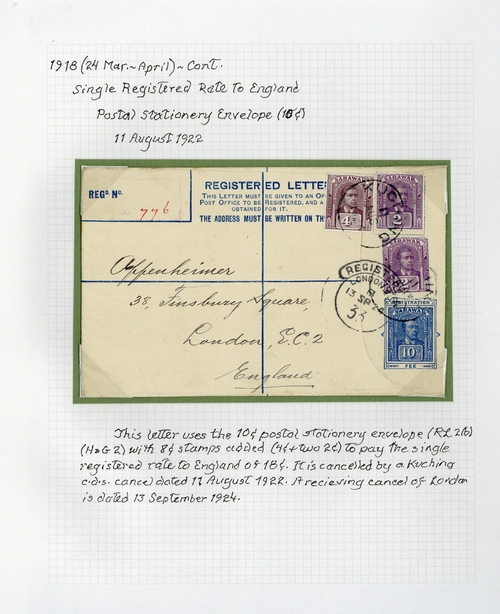 1918 (24 Mar.~April)~Cont.
Single Registered Rate to England
Postal Stationery Envelope (10¢)
11 August 1922
REGᴰ Nº.
776
REGISTERED LETTE
THIS LETTER MUST BE GIVEN TO AN OF
POST OFFICE TO BE REGISTERED, AND A
OBTAINED FOR IT.
THE ADDRESS MUST BE WRITTEN ON TH
SARAWAK
4
SARAWAK
2
SARAWAK
KUCHING
REGISTERED
LONDON
13 SP 24
33
REGISTRATION
SARAWAK
10¢
FEE
Oppenheimer
38, Finsbury Square,
London, E.C.2
England.
This letter uses the 10¢ postal stationery envelope (RL 2(b)
(H&G 2) with 8¢ stamps added (4¢+two 2¢) to pay the single
registered rate to England of 18¢. It is cancelled by a Kuching
c.d.s. cancel dated 11 August 1922. A recieving cancel of London
is dated 13 September 1924.